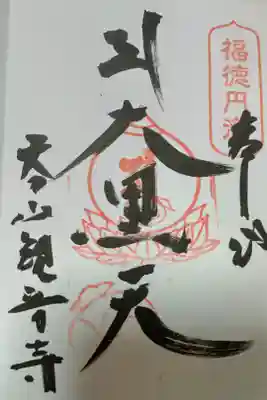 福徳円満
奉拝
大黒天
天山観音寺